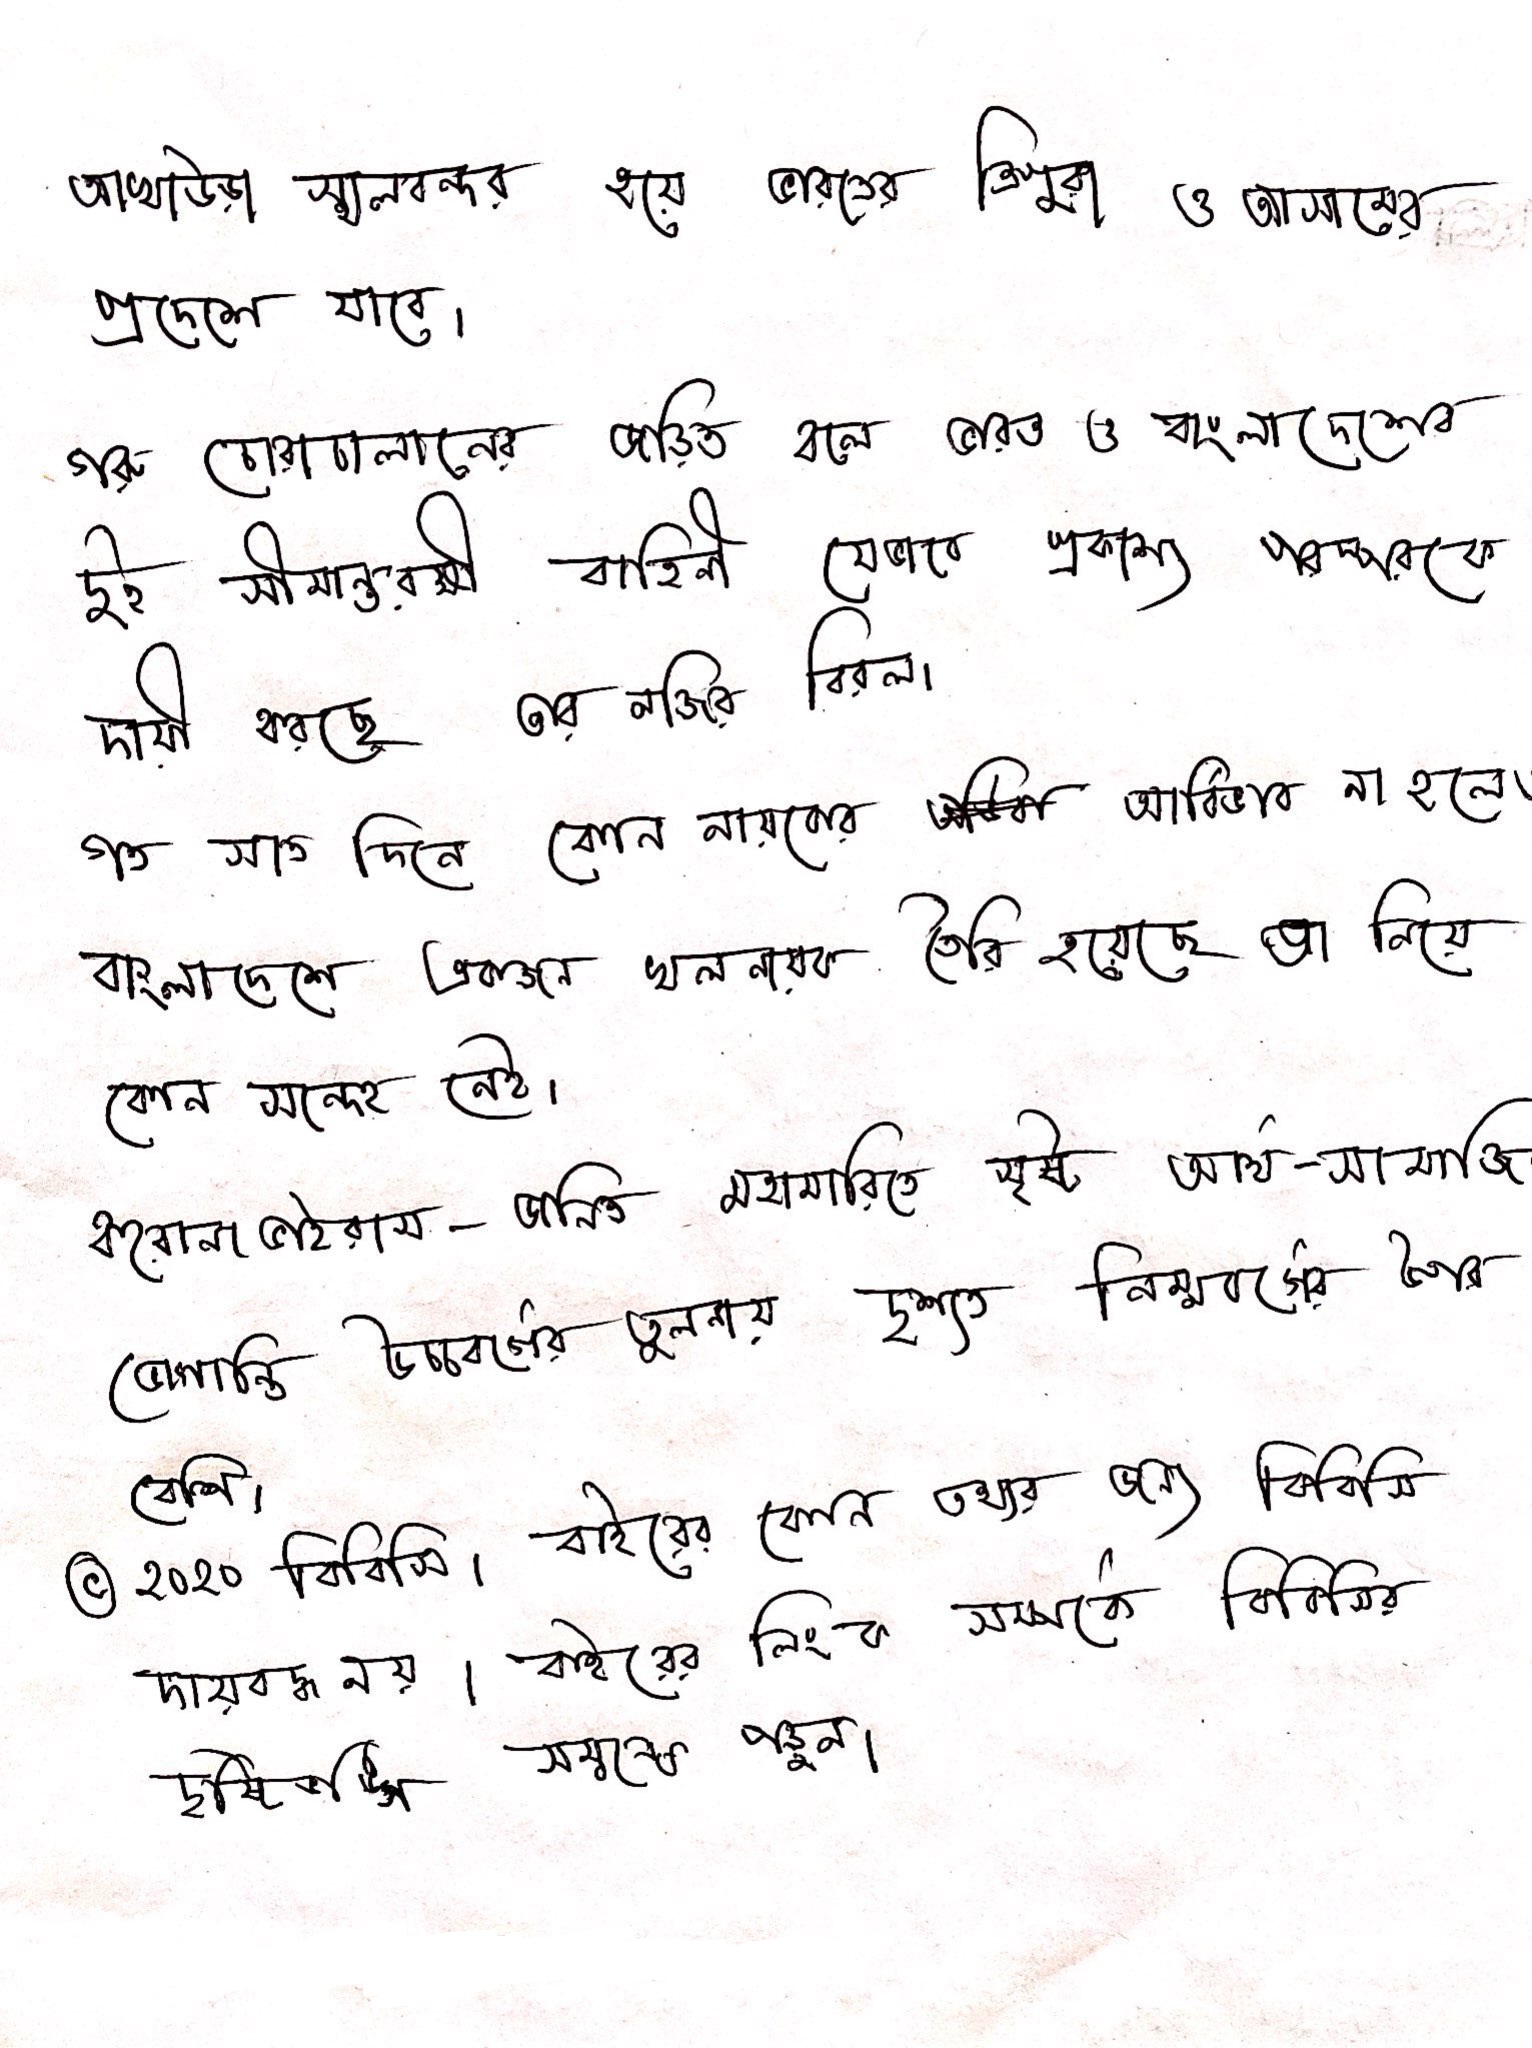 আখাউড়া স্থলবন্দর হয়ে ভারতের ত্রিপুরা ও আসামের
প্রদেশে যাবে।
গরু চোরাচালানের জড়িত বলে ভারত ও বাংলাদেশের
দুই সীমান্তরক্ষী বাহিনী যেভাবে প্রকাশ্য পরস্পরকে
দায়ী করছে তার নজির বিরল।
গত সাত দিনে কোন নায়কের আবির্ভাব না হলেও
বাংলাদেশে একজন খলনায়ক তৈরি হয়েছে তা নিয়ে
কোন সন্দেহ নেই।
করোনাভাইরাস-জনিত মহামারিতে সৃষ্ট আর্থ-সামাজি
ভোগান্তি উচ্চবর্গের তুলনায় দৃশ্যত নিম্নবর্গের উপর
বেশি।
© ২০২০ বিবিসি। বাইরের কোন তথ্যর জন্য বিবিসি
দায়বদ্ধ নয়। বাইরের লিংক সম্পর্কে বিবিসির
দৃষ্টিভঙ্গি সম্বন্ধে পড়ুন।